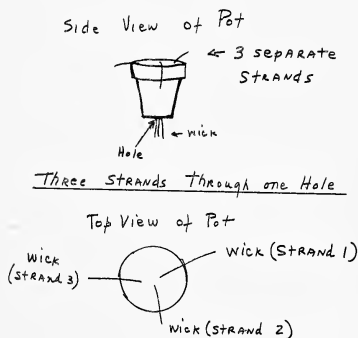 Side View of Pot
← 3 separate
strands
← wick
Hole
Three strands through one Hole
Top View of Pot
wick (strand 1)
wick
(strand 3)
wick (strand 2)